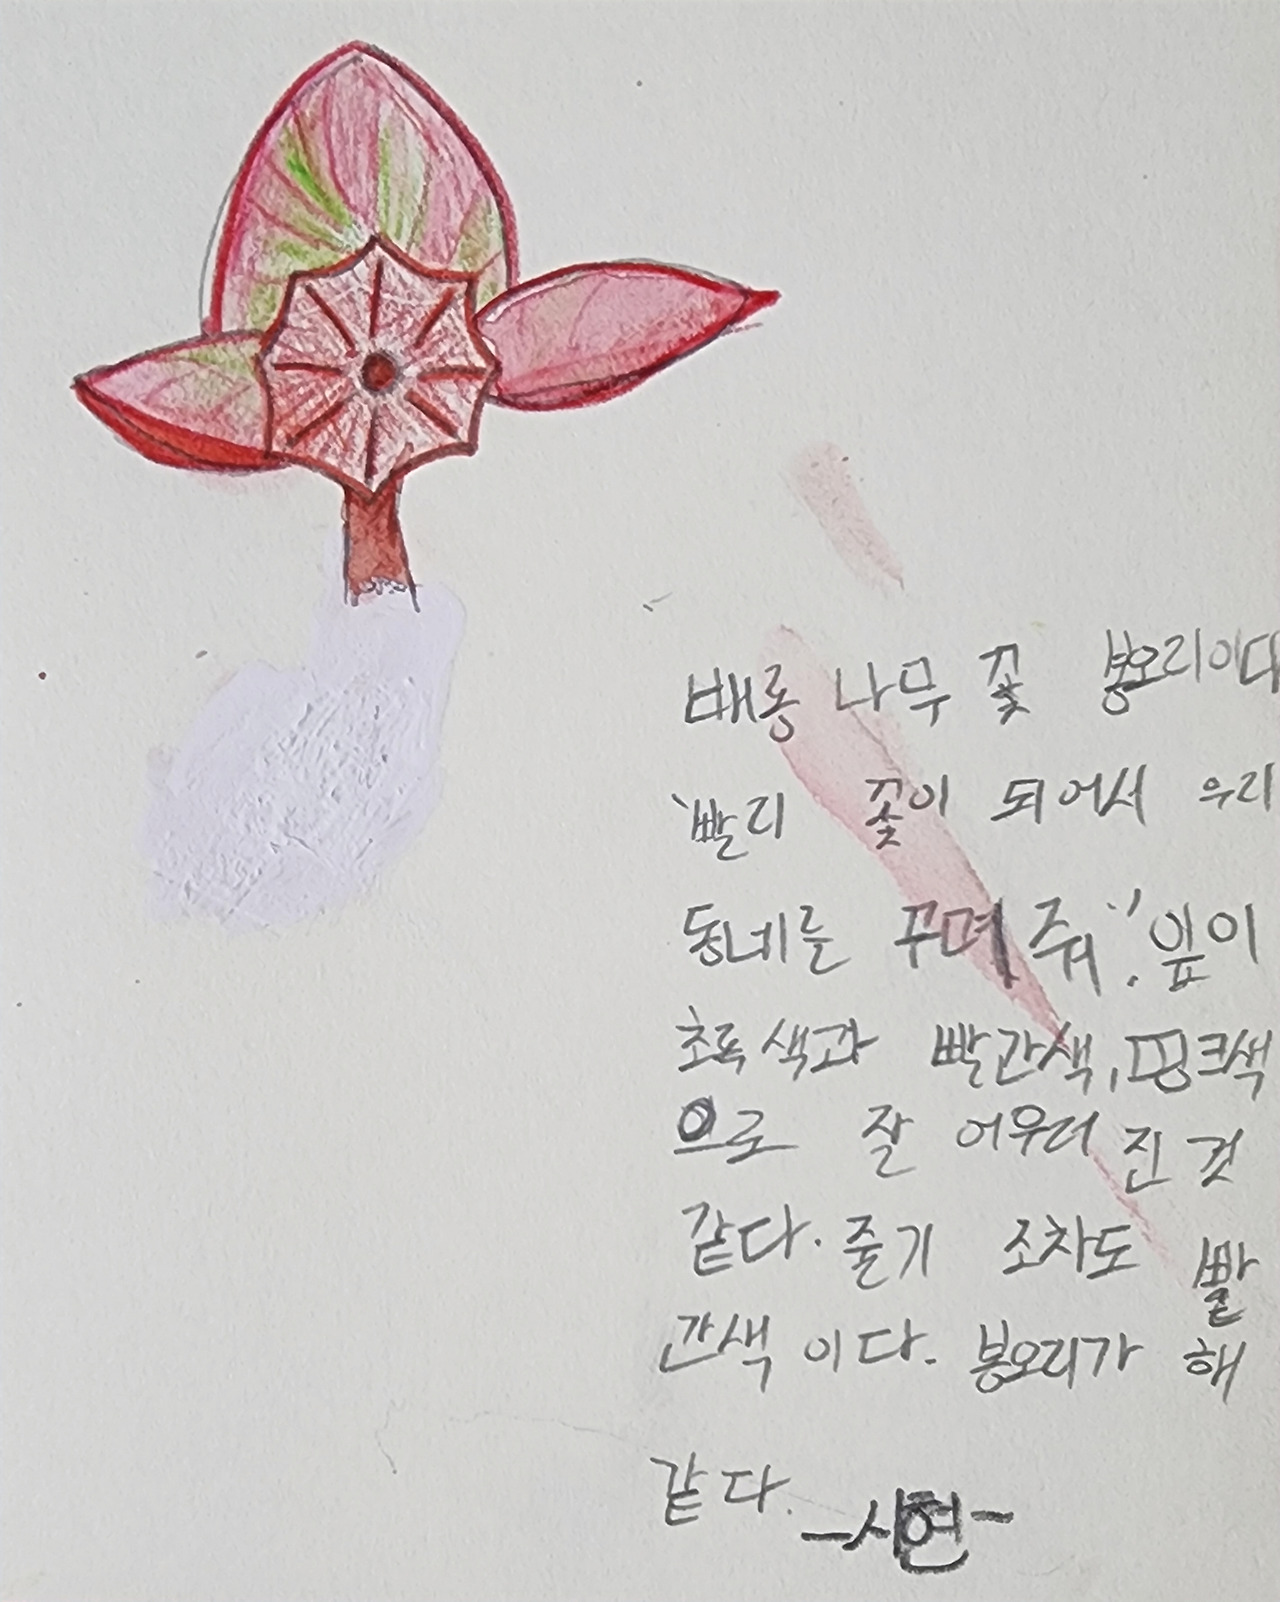 배롱 나무 꽃 봉오리이다
빨리 꽃이 되어서 우리
동네를 꾸며 줘'! 잎이
초록색과 빨간색, 핑크색
으로 잘 어우러 진 것
같다. 줄기 조차도 빨
간색 이다. 봉오리가 해
같다. -시현-